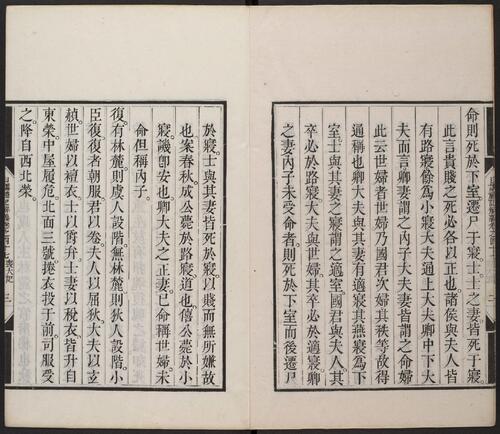 命則死於下室。遷尸于寢。士士之妻皆死于寢。
此言貴賤之死必各以正也。諸侯與夫人皆
有路寢餘爲小寢大夫通上大夫卿中下大
夫而言卿妻謂之內子大夫妻皆謂之命婦
此云世婦者世婦乃國君次婦其秩等故得
通稱也卿大夫與其妻有適寢其燕寢爲下
室士與其妻之寢謂之適室國君與夫人其
卒必於路寢大夫與世婦其卒必於適寢卿
之妻內子未受命者則死於下室而後遷尸
於寢士與其妻皆死於寢以賤而無所嫌故
也案春秋成公薨於路寢道也僖公薨於小
寢譏卽安也大夫之正妻已命稱世婦未
命但稱內子。
復。有林麓則虞人設階無林麓則狄人設階。小
臣復復者朝服。君以卷。夫人以屈狄大夫以玄
赬世婦以襢衣士以爵弁士妻以稅衣皆升自
東榮。中屋履危。北面三號捲衣投于前司服受
之。降自西北榮。
三